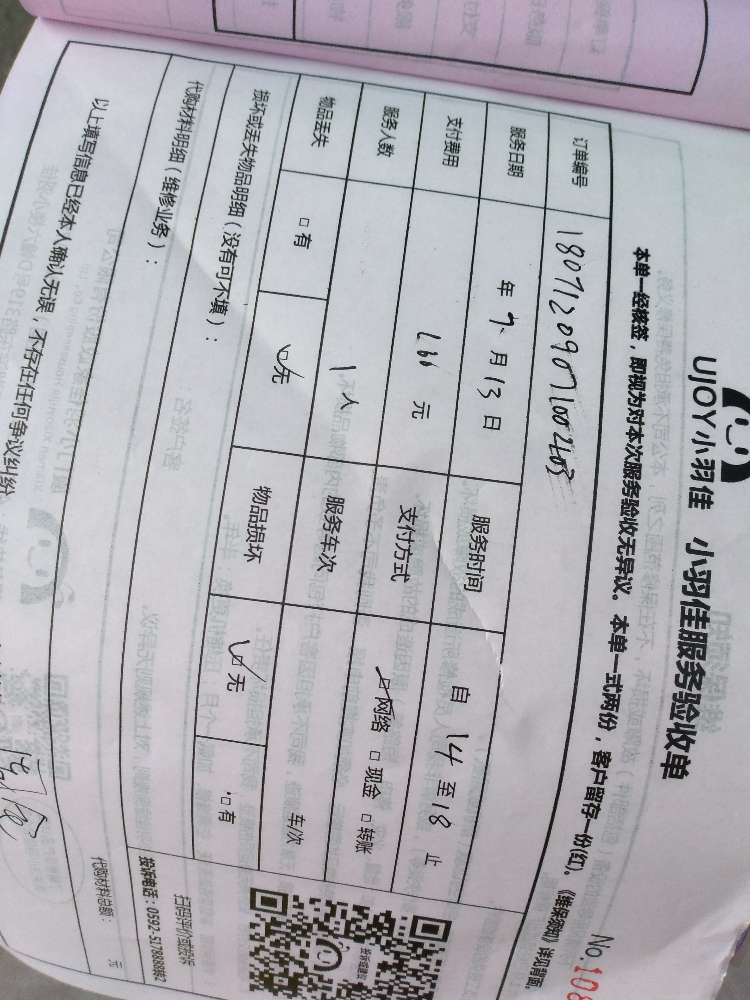 UJOY小羽佳 小羽佳服务验收单
本单一经核签，即视为对本次服务验收无异议。本单一式两份，客户留存一份(红)。《维保须知》详见背面。
No.108
订单编号 18071209071002403
服务日期 年 7 月 13 日 服务时间 自 14 至 18 止
支付费用 元 支付方式 网络 现金 转账
服务人数 1 人 服务车次 车/次
物品丢失 有 无 物品损坏 无 有
损坏或丢失物品明细（没有可不填）：
代购材料明细（维修业务）：
代购材料总额： 元
以上填写信息已经本人确认无误，不存在任何争议纠纷
扫码评价或投诉
投诉电话：0592-5178888转2